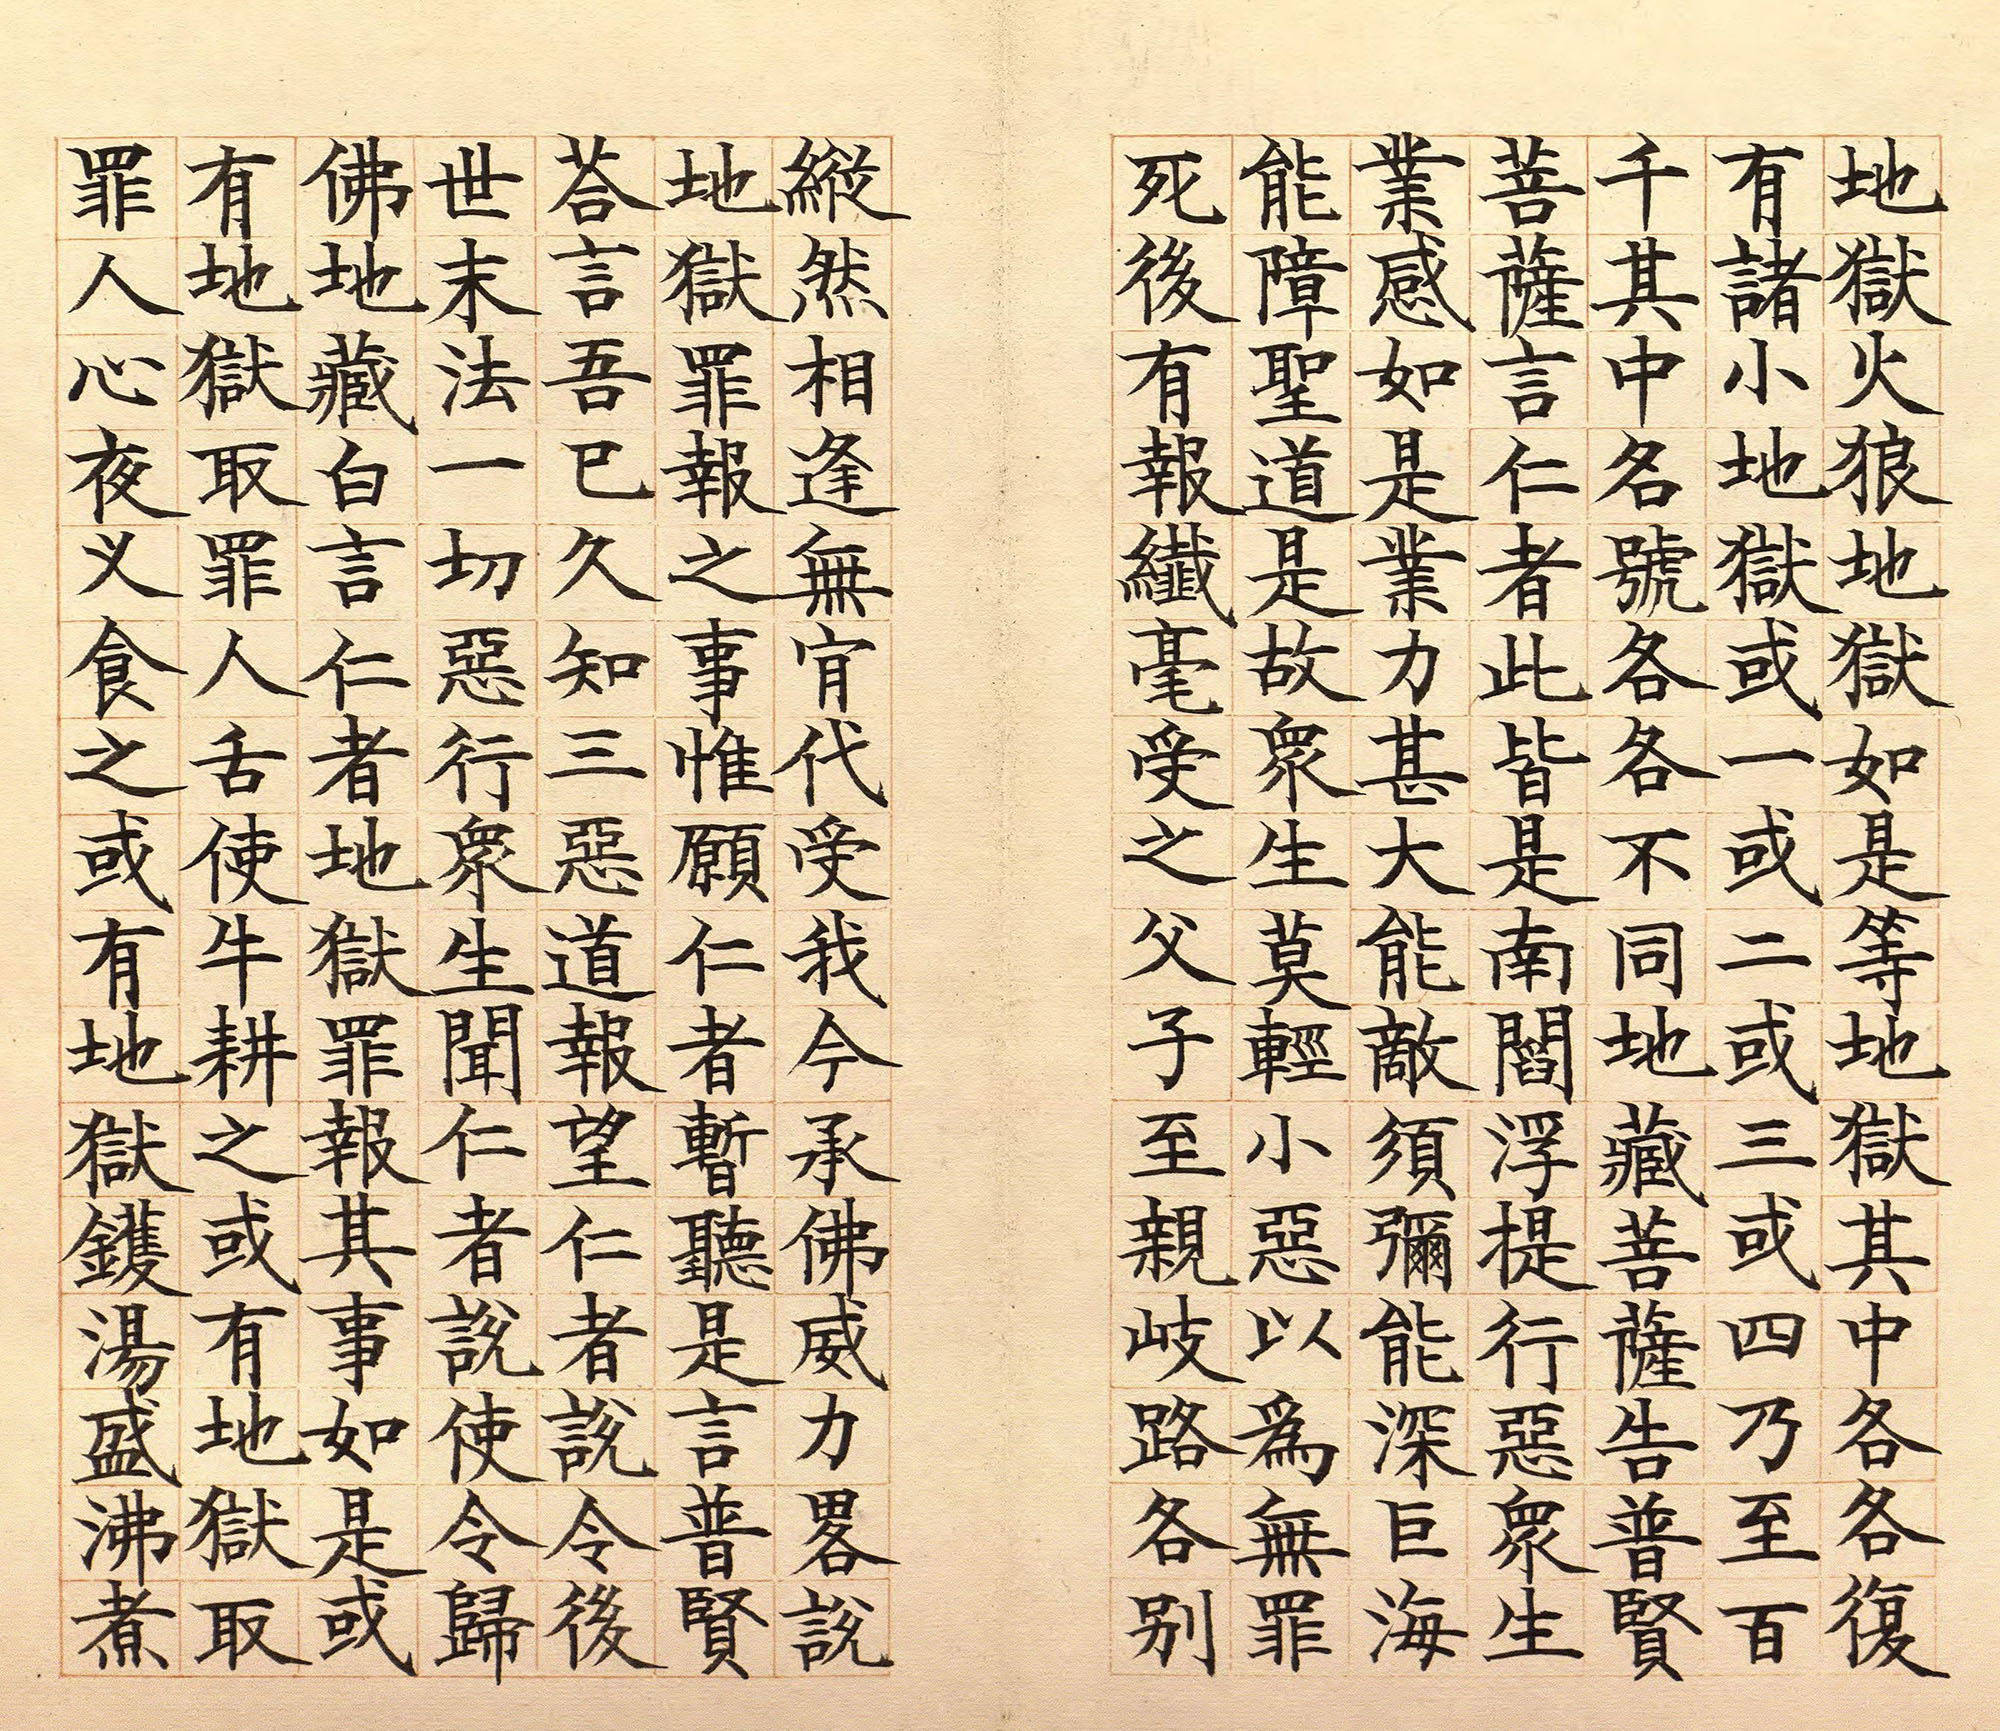 地獄火狼地獄如是等地獄其中各各復
有諸小地獄或一或二或三或四乃至百
千其中名號各各不同地藏菩薩告普賢
菩薩言仁者此皆是南閻浮提行惡眾生
業感如是業力甚大能敵須彌能深巨海
能障聖道是故眾生莫輕小惡以為無罪
死後有報纖毫受之父子至親岐路各別
縱然相逢無肯代受我今承佛威力畧說
地獄罪報之事惟願仁者暫聽是言普賢
荅言吾已久知三惡道報望仁者說令後
世末法一切惡行眾生聞仁者說使令歸
佛地藏白言仁者地獄罪報其事如是或
有地獄取罪人舌使牛耕之或有地獄取
罪人心夜义食之或有地獄鑊湯盛沸煮